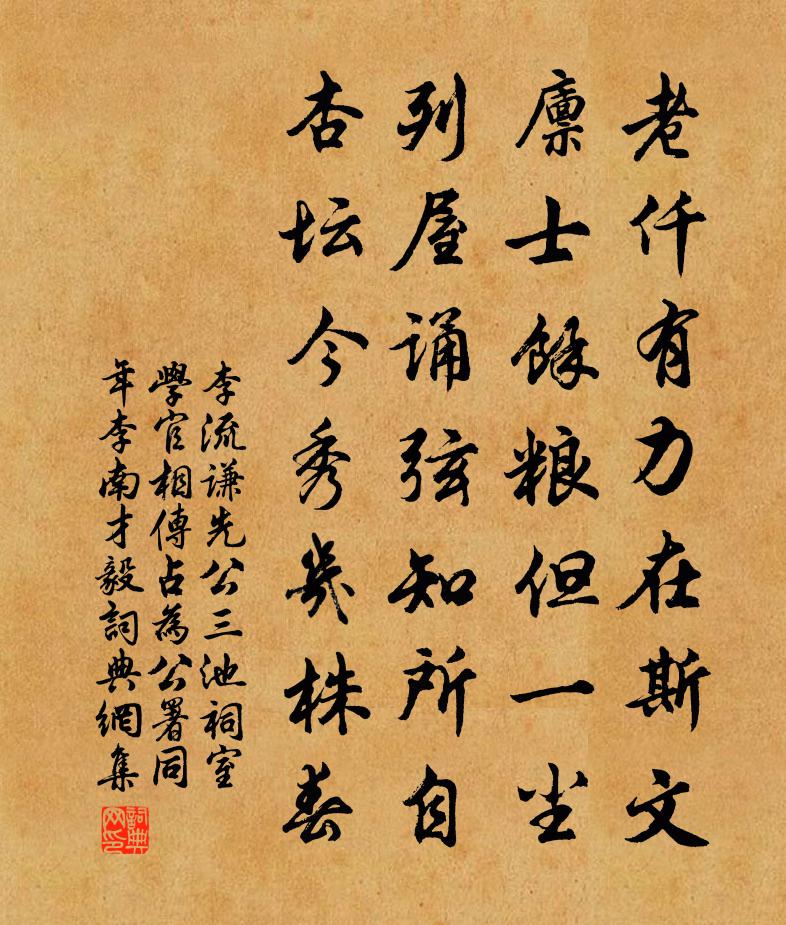 老仟有力在斯文
廪士餘粮但一尘
列屋诵弦知所自
杏坛今秀几株春
李流谦先公三池祠室
學官相傳占為公署同
年李南才毅詞典網集
詞典网印